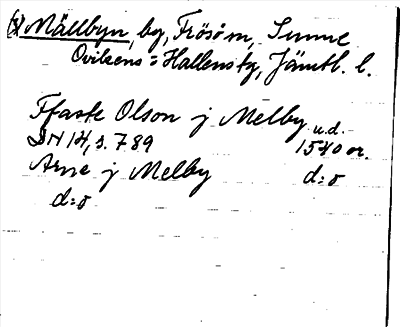 (x) Mällbyn, by, Frösö sn, Sunne
Ovikens = Hallens tg, Jämtl. l.
Ffaste Olson j Melby u.d.
DN 14, s. 789 1540 or.
Arne j Melby d:o
d:o